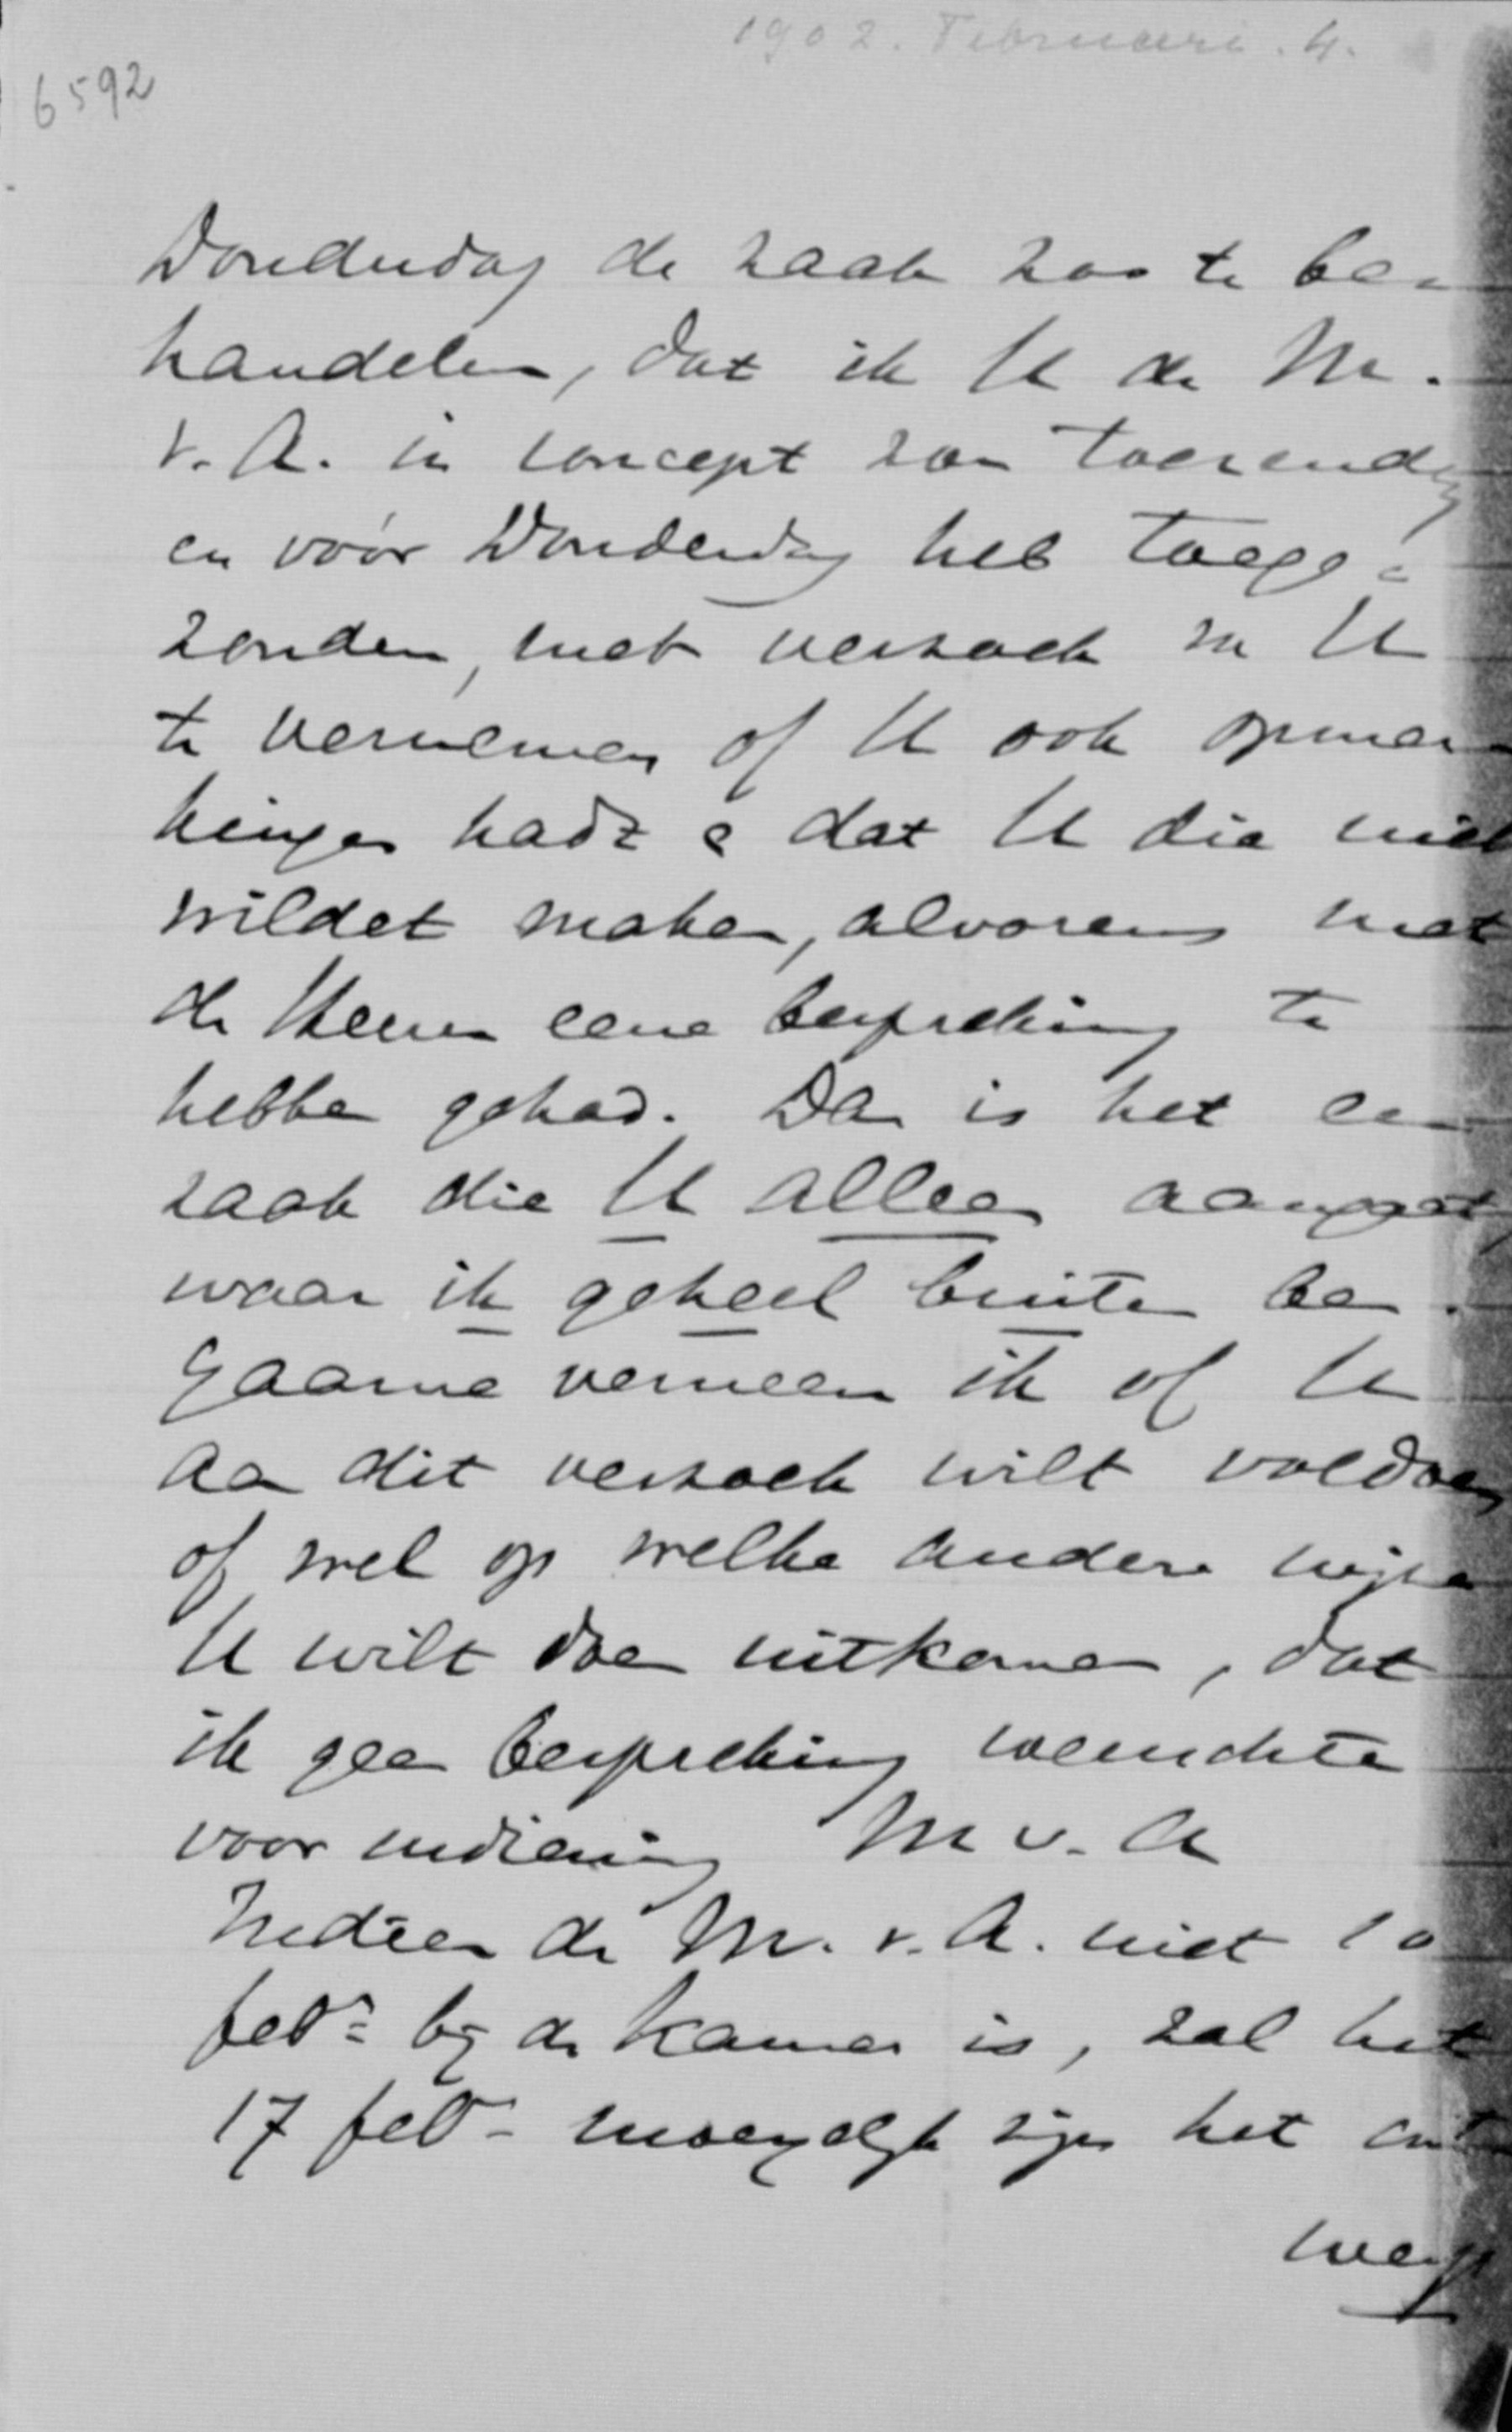 1902. Februari. 4.
6592
Donderdag de zaak zoo te be-
handelen, dat ik U de M.
v. A. in concept zou toezenden
en vóór Donderdag heb toege-
zonden, met verzoek van U
te vernemen of U ook opmer-
kingen hadt & dat U die niet
wildet maken, alvorens met
de Heeren eene bespreking te
hebben gehad. Dan is het een
zaak die U alleen aangaat,
waar ik geheel buiten ben.
Gaarne verneem ik of U
aan dit verzoek wilt voldoen
of wel op welke andere wijze
U wilt doen uitkomen, dat
ik geen bespreking wenschte
voor indiening M v. A
Indien de M. v. A. niet 10
febr. bij de Kamer is, zal het
17 febr. moeyelijk zijn het ont
werp